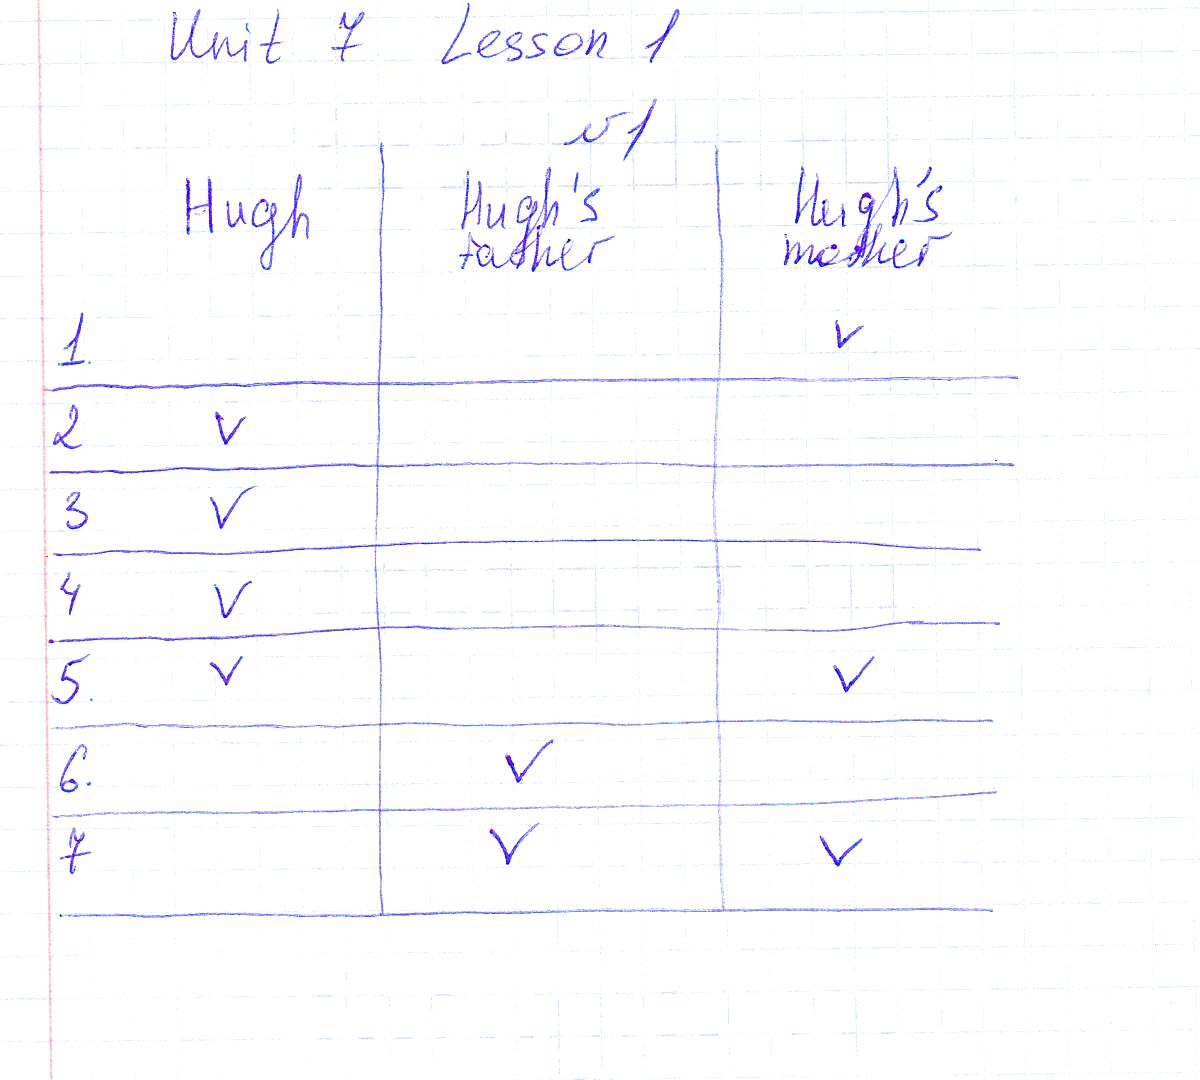 Unit 7 Lesson 1
№1
Hugh Hugh's father Hugh's mother
1. v
2 v
3 v
4 v
5. v v
6. v
7 v v